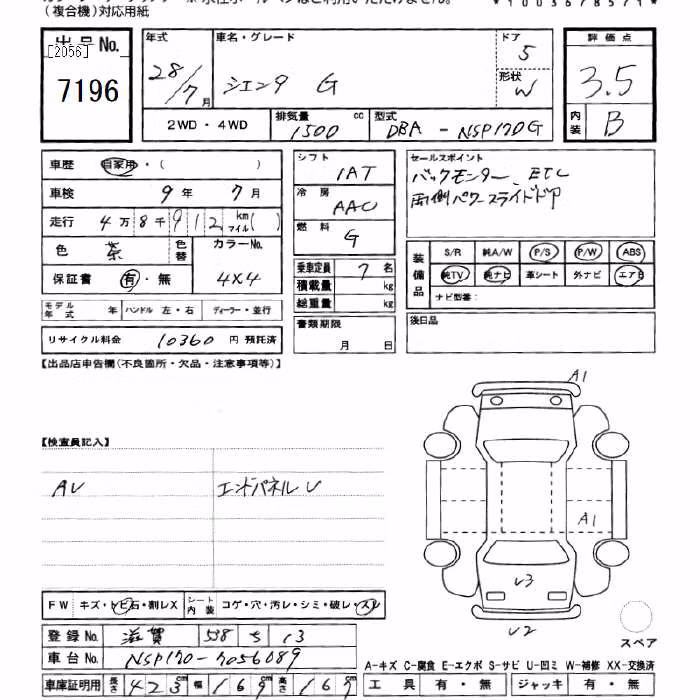 （複合機）対応用紙
出品No.
[2056]
7196
年式 28/7月
車名・グレード シエンタ G
ドア 5
形状 W
評価点 3.5
内装 B
2WD・4WD
排気量 1500 cc
型式 DBA - NSP170G
車歴 自家用・( )
車検 9年 7月
走行 4万8千912 km マイル( )
色 茶 色替 カラーNo. 4X4
保証書 有・無
シフト IAT
冷房 AAC
燃料 G
乗車定員 7名
積載量 kg
総重量 kg
セールスポイント
バックモニター、ETC
両側パワースライドドア
装備品 S/R 純A/W P/S P/W ABS
純TV 純ナビ 革シート 外ナビ エアB
ナビ型番：
モデル年式 年 ハンドル 左・右 ディーラー・並行
リサイクル料金 10360 円 預託済
書類期限 月 日
後日品
【出品店申告欄(不良箇所・欠品・注意事項等)】
【検査員記入】
AU エンドパネルU
A1
A1
U3
U2
FW キズ・トビ石・割レX シート内装 コゲ・穴・汚レ・シミ・破レ・スレ
登録No. 滋賀 538 ち 13
車台No. NSP170-7056089
車庫証明用 長さ 423cm 幅 169cm 高さ 169cm
スペア
A-キズ C-腐食 E-エクボ S-サビ U-凹ミ W-補修 XX-交換済
工具 有・無 ジャッキ 有・無